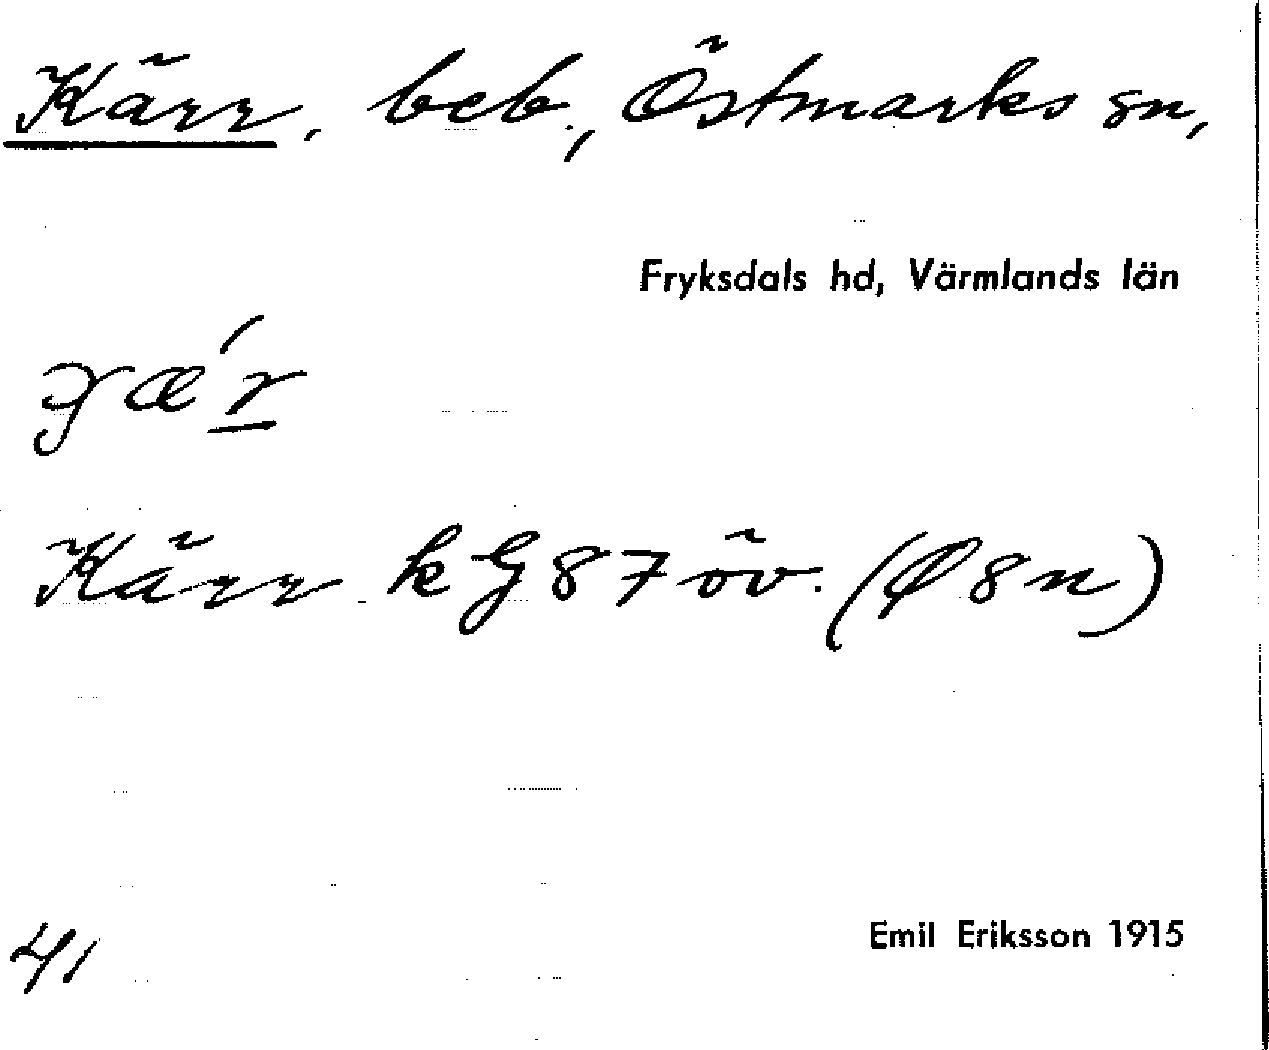 Kärr, beb., Östmarks sn,
Fryksdals hd, Värmlands län
Kärr k G 87 öv. (Ø 8 n)
41
Emil Eriksson 1915